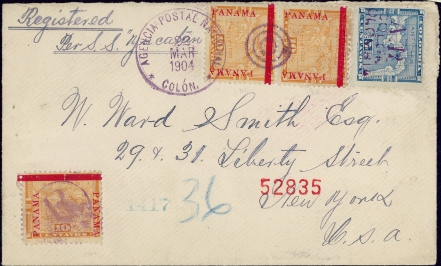 Registered
Per S.S. "Yucatan
AGENCIA POSTAL
MAR
1904
COLÓN.
PANAMA
PANAMA
PANAMA
PANAMA
W. Ward Smith Esq.
29 & 31 Liberty Street
52835
New York
U.S.A.
1417 36
PANAMA
PANAMA
10